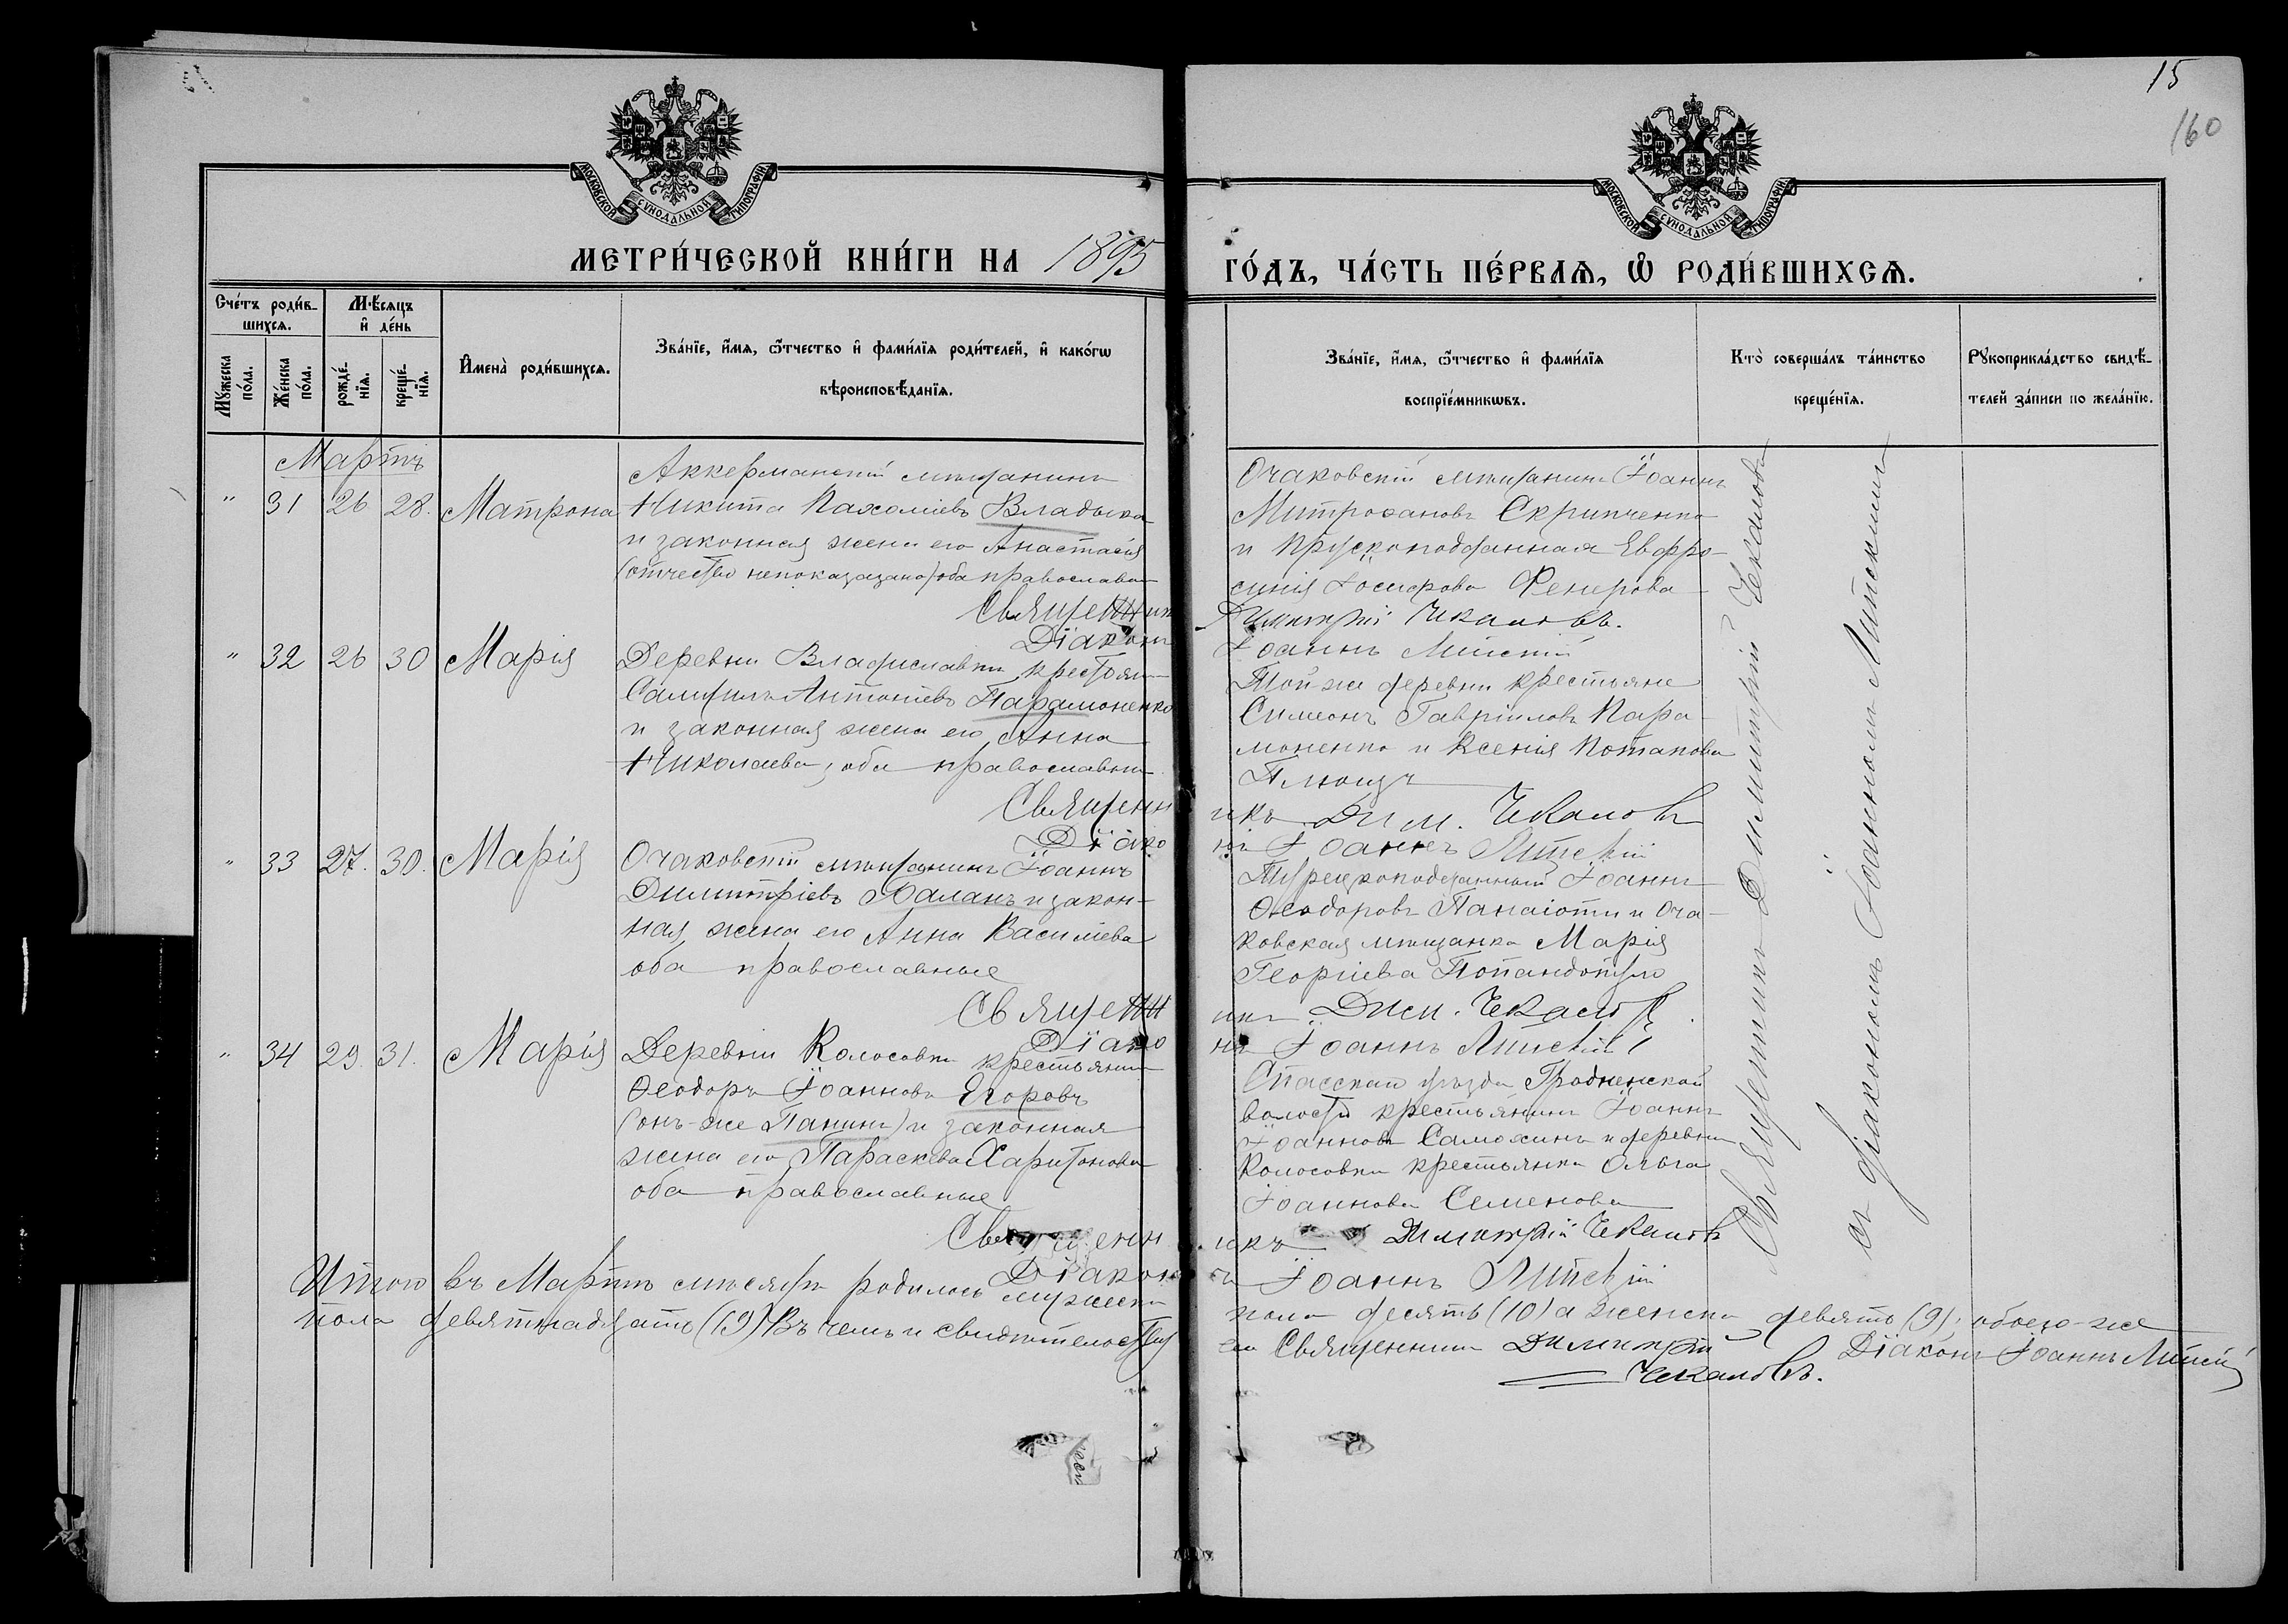 15
160
МОСКОВСКОЙ СѴНОДАЛЬНОЙ ТИПОГРАФІИ
МОСКОВСКОЙ СѴНОДАЛЬНОЙ ТИПОГРАФІИ
МЕТРИ́ЧЕСКОЙ КНИ́ГИ НА 1895
ГО́ДЪ, ЧА́СТЬ ПЕ́РВАѦ, Ѡ РОДИ́ВШИХСѦ.
Сче́тъ роди́в-
шихсѧ.
Мѣ́сяцъ
и҆ де́нь
Мꙋ́жеска
по́ла.
Же́нска
по́ла.
рожде́-
нїѧ.
креще́-
нїѧ.
И҆мена̀ роди́вшихсѧ.
Зва́нїе, и҆́мѧ, ѻ҆́тчество и҆ фами́лїѧ роди́телей, и҆ како́гѡ
вѣроисповѣ́данїѧ.
Зва́нїе, и҆́мѧ, ѻ҆́тчество и҆ фами́лїѧ
воспрїе́мникѡвъ.
Кто̀ соверша́лъ та́инство
креще́нїѧ.
Рꙋкоприкла́дство свидѣ́-
телей за́писи по жела́нїю.
Мартъ
" 31 26 28. Матрона
Аккерманскій мѣщанинъ
Никита Пахоміевъ Владыка
и законная жена его Анастасія
(отчество непоказазано) оба православн
Очаковскій мѣщанинъ Іоаннъ
Митрофановъ Скрипченко
и Прусскоподданная Евфро-
синія Іосифова Фенерова
Священникъ Димитрій Чекаловъ.
Діаконъ Іоаннъ Липскій
" 32 26 30 Марія
Деревни Владиславки крестьян
Самуилъ Антоніевъ Парамоненко
и законная жена его Анна
Николаева, оба православн
Той-же деревни крестьяне
Симеонъ Гавріиловъ Пара-
моненко и Ксенія Потапова
Плющъ
Священникъ Дим. Чекаловъ
Діаконъ Іоаннъ Липскій
" 33 27. 30. Марія
Очаковскій мѣщанинъ Іоаннъ
Димитріевъ Баланъ и закон-
ная жена его Анна Василіева
оба православные
Турецкоподданный Іоаннъ
Ѳеодоровъ Панаіоти и Оча-
ковская мѣщанка Марія
Георгіева Попандопуло
Священникъ Дим. Чекаловъ.
Діаконъ Іоаннъ Липскій
" 34 29. 31. Марія
Деревни Колосовки крестьянин
Ѳеодоръ Іоанновъ Егоровъ
(онъ-же Панинъ) и законная
жена его Параскева Харитонова
оба православные
Спасскаго уѣзда Гродненской
волости крестьянинъ Іоаннъ
Іоанновъ Самохинъ и деревни
Колосовки крестьянка Ольга
Іоаннова Семенова
Священникъ Димитрій Чекаловъ
Діаконъ Іоаннъ Липскій
Священникъ Димитрій Чекаловъ
съ діакономъ Іоанномъ Липскимъ
Итого въ Мартѣ мѣсяцѣ родилось мужеска пола десять (10) а женска девять (9); обоего-же
пола девятнадцать (19) Въ чемъ и свидѣтельствуемъ Священникъ Димитрій Діаконъ Іоаннъ Липскій
Чекаловъ.